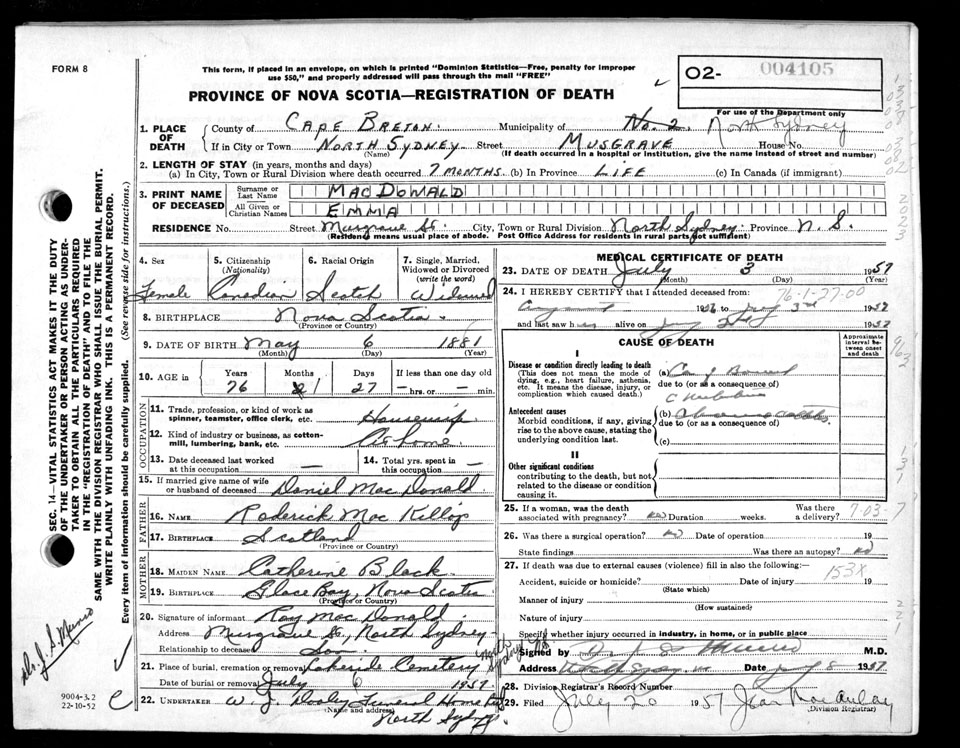 FORM 8
This form, if placed in an envelope, on which is printed "Dominion Statistics—Free, penalty for improper
use $50," and properly addressed will pass through the mail "FREE"
02- 004105
For use of the Department only
PROVINCE OF NOVA SCOTIA—REGISTRATION OF DEATH
1. PLACE OF DEATH County of CAPE BRETON. Municipality of No. 2. North Sydney
If in City or Town NORTH SYDNEY Street MUSGRAVE House No.
(Name) (If death occurred in a hospital or institution, give the name instead of street and number)
2. LENGTH OF STAY (in years, months and days)
(a) In City, Town or Rural Division where death occurred 7 MONTHS. (b) In Province LIFE (c) In Canada (if immigrant)
3. PRINT NAME OF DECEASED Surname or Last Name MACDONALD
All Given or Christian Names EMMA
RESIDENCE No. Street Musgrave St. City, Town or Rural Division North Sydney. Province N. S.
(Residence means usual place of abode. Post Office Address for residents in rural parts not sufficient)
4. Sex Female
5. Citizenship (Nationality) Canadian
6. Racial Origin Scotch
7. Single, Married, Widowed or Divorced (write the word) Widowed
8. BIRTHPLACE Nova Scotia.
(Province or Country)
9. DATE OF BIRTH May 6 1881
(Month) (Day) (Year)
10. AGE in Years 76 Months 1 Days 27 If less than one day old
— hrs. or — min.
OCCUPATION
11. Trade, profession, or kind of work as spinner, teamster, office clerk, etc. Housewife
12. Kind of industry or business, as cotton-mill, lumbering, bank, etc. At home
13. Date deceased last worked at this occupation —
14. Total yrs. spent in this occupation —
15. If married give name of wife or husband of deceased Daniel MacDonald
FATHER
16. NAME Roderick Mac
17. BIRTHPLACE Scotland
(Province or Country)
MOTHER
18. MAIDEN NAME Catherine Black.
19. BIRTHPLACE Glace Bay, Nova Scotia
(Province or Country)
20. Signature of informant Ray MacDonald.
Address Musgrave St, North Sydney N.S.
Relationship to deceased Son.
21. Place of burial, cremation or removal Lakeside Cemetery North Sydney
Date of burial or removal July 6 1957.
22. UNDERTAKER W. J. Dooley Funeral Home
(Name and address) North Sydney
MEDICAL CERTIFICATE OF DEATH
23. DATE OF DEATH July 3 1957
(Month) (Day)
24. I HEREBY CERTIFY that I attended deceased from:
76-1-27-00
August 1956 to July 3rd 1957
and last saw her alive on 1957
CAUSE OF DEATH
Approximate interval between onset and death
I
Disease or condition directly leading to death
(This does not mean the mode of dying, e.g., heart failure, asthenia, etc. It means the disease, injury, or complication which caused death.)
(a)
due to (or as a consequence of)
Antecedent causes
Morbid conditions, if any, giving rise to the above cause, stating the underlying condition last.
(b)
due to (or as a consequence of)
(c)
II
Other significant conditions
contributing to the death, but not related to the disease or condition causing it.
25. If a woman, was the death associated with pregnancy? no Duration weeks. Was there a delivery? 7-03-7
26. Was there a surgical operation? no Date of operation 19
State findings Was there an autopsy? no
27. If death was due to external causes (violence) fill in also the following:—
153X
Accident, suicide or homicide? Date of injury 19
(State which)
Manner of injury
(How sustained)
Nature of injury
Specify whether injury occurred in industry, in home, or in public place
Signed by Dr. J. S. Munro M.D.
Address Date July 8 1957
28. Division Registrar's Record Number
29. Filed July 20 1957 Jean MacAulay
(Division Registrar)
SEC. 14—VITAL STATISTICS ACT MAKES IT THE DUTY
OF THE UNDERTAKER OR PERSON ACTING AS UNDER-
TAKER TO OBTAIN ALL THE PARTICULARS REQUIRED
IN THE "REGISTRATION OF DEATH" AND TO FILE THE
SAME WITH THE DIVISION REGISTRAR WHO SHALL ISSUE THE BURIAL PERMIT.
WRITE PLAINLY WITH UNFADING INK. THIS IS A PERMANENT RECORD.
Every item of information should be carefully supplied. (See reverse side for instructions.)
Dr. J. S. Munro
9004-3.2
22-10-52